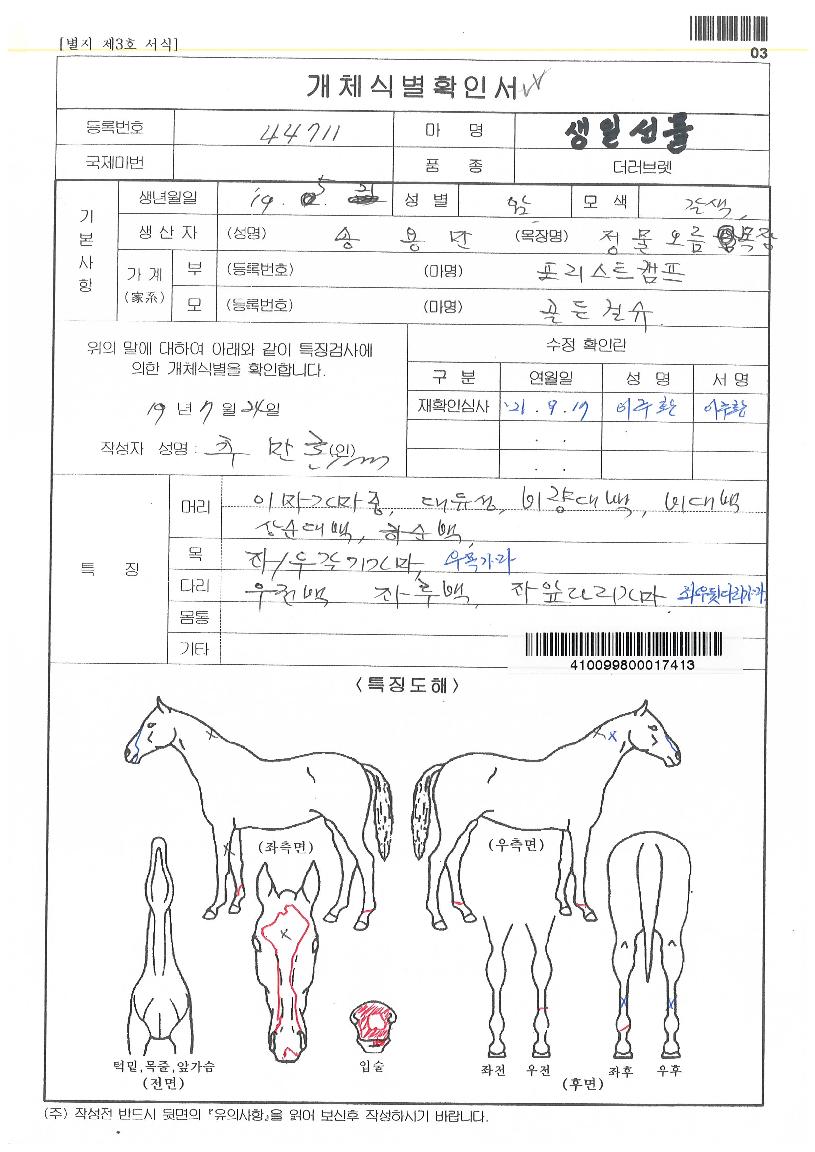 [별지 제3호 서식]
03
개체식별확인서
등록번호 44711 마 명 생일선물
국제마번 품 종 더러브렛
기본사항
생년월일 '19. 5. 성 별 암 모 색 갈색
생 산 자 (성명) 송 용 만 (목장명) 정 물 오 름 목장
가 계 (家系) 부 (등록번호) (마명) 포리스트캠프
모 (등록번호) (마명) 골든걸슈
위의 말에 대하여 아래와 같이 특징검사에
의한 개체식별을 확인합니다.
19 년 7 월 24 일
작성자 성명 : 추 만 (인)
수정 확인란
구 분 연월일 성 명 서 명
재확인심사 '21 . 9 . 17 이주환 이주환
. .
. .
특 징
머리 이마가마중, 대유성, 비량대백, 비대백
상순대백, 하순백,
목 좌/우 각1가마, 우목가마
다리 우전백 좌후백, 좌앞다리가마 좌우뒷다리가마
몸통
기타
410099800017413
<특징도해>
(좌측면) (우측면)
턱밑,목줄,앞가슴
(전면)
입술
좌전 우전 좌후 우후
(후면)
(주) 작성전 반드시 뒷면의 『유의사항』을 읽어 보신후 작성하시기 바랍니다.